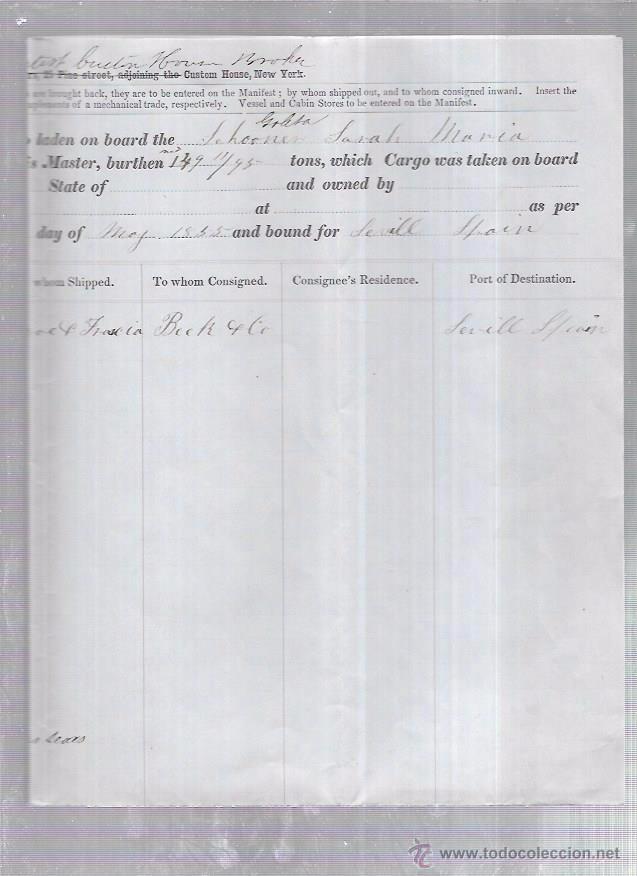 Custom House Broker
25 Pine street, adjoining the Custom House, New York.
brought back, they are to be entered on the Manifest; by whom shipped out, and to whom consigned inward. Insert the
of a mechanical trade, respectively. Vessel and Cabin Stores to be entered on the Manifest.
Goleta
laden on board the Schooner Sarah Maria
Master, burthen 149 11/95 tons, which Cargo was taken on board
State of and owned by
at as per
day of May 1855 and bound for Sevill Spain
whom Shipped. To whom Consigned. Consignee's Residence. Port of Destination.
Beck & Co Sevill Spain
www.todocoleccion.net